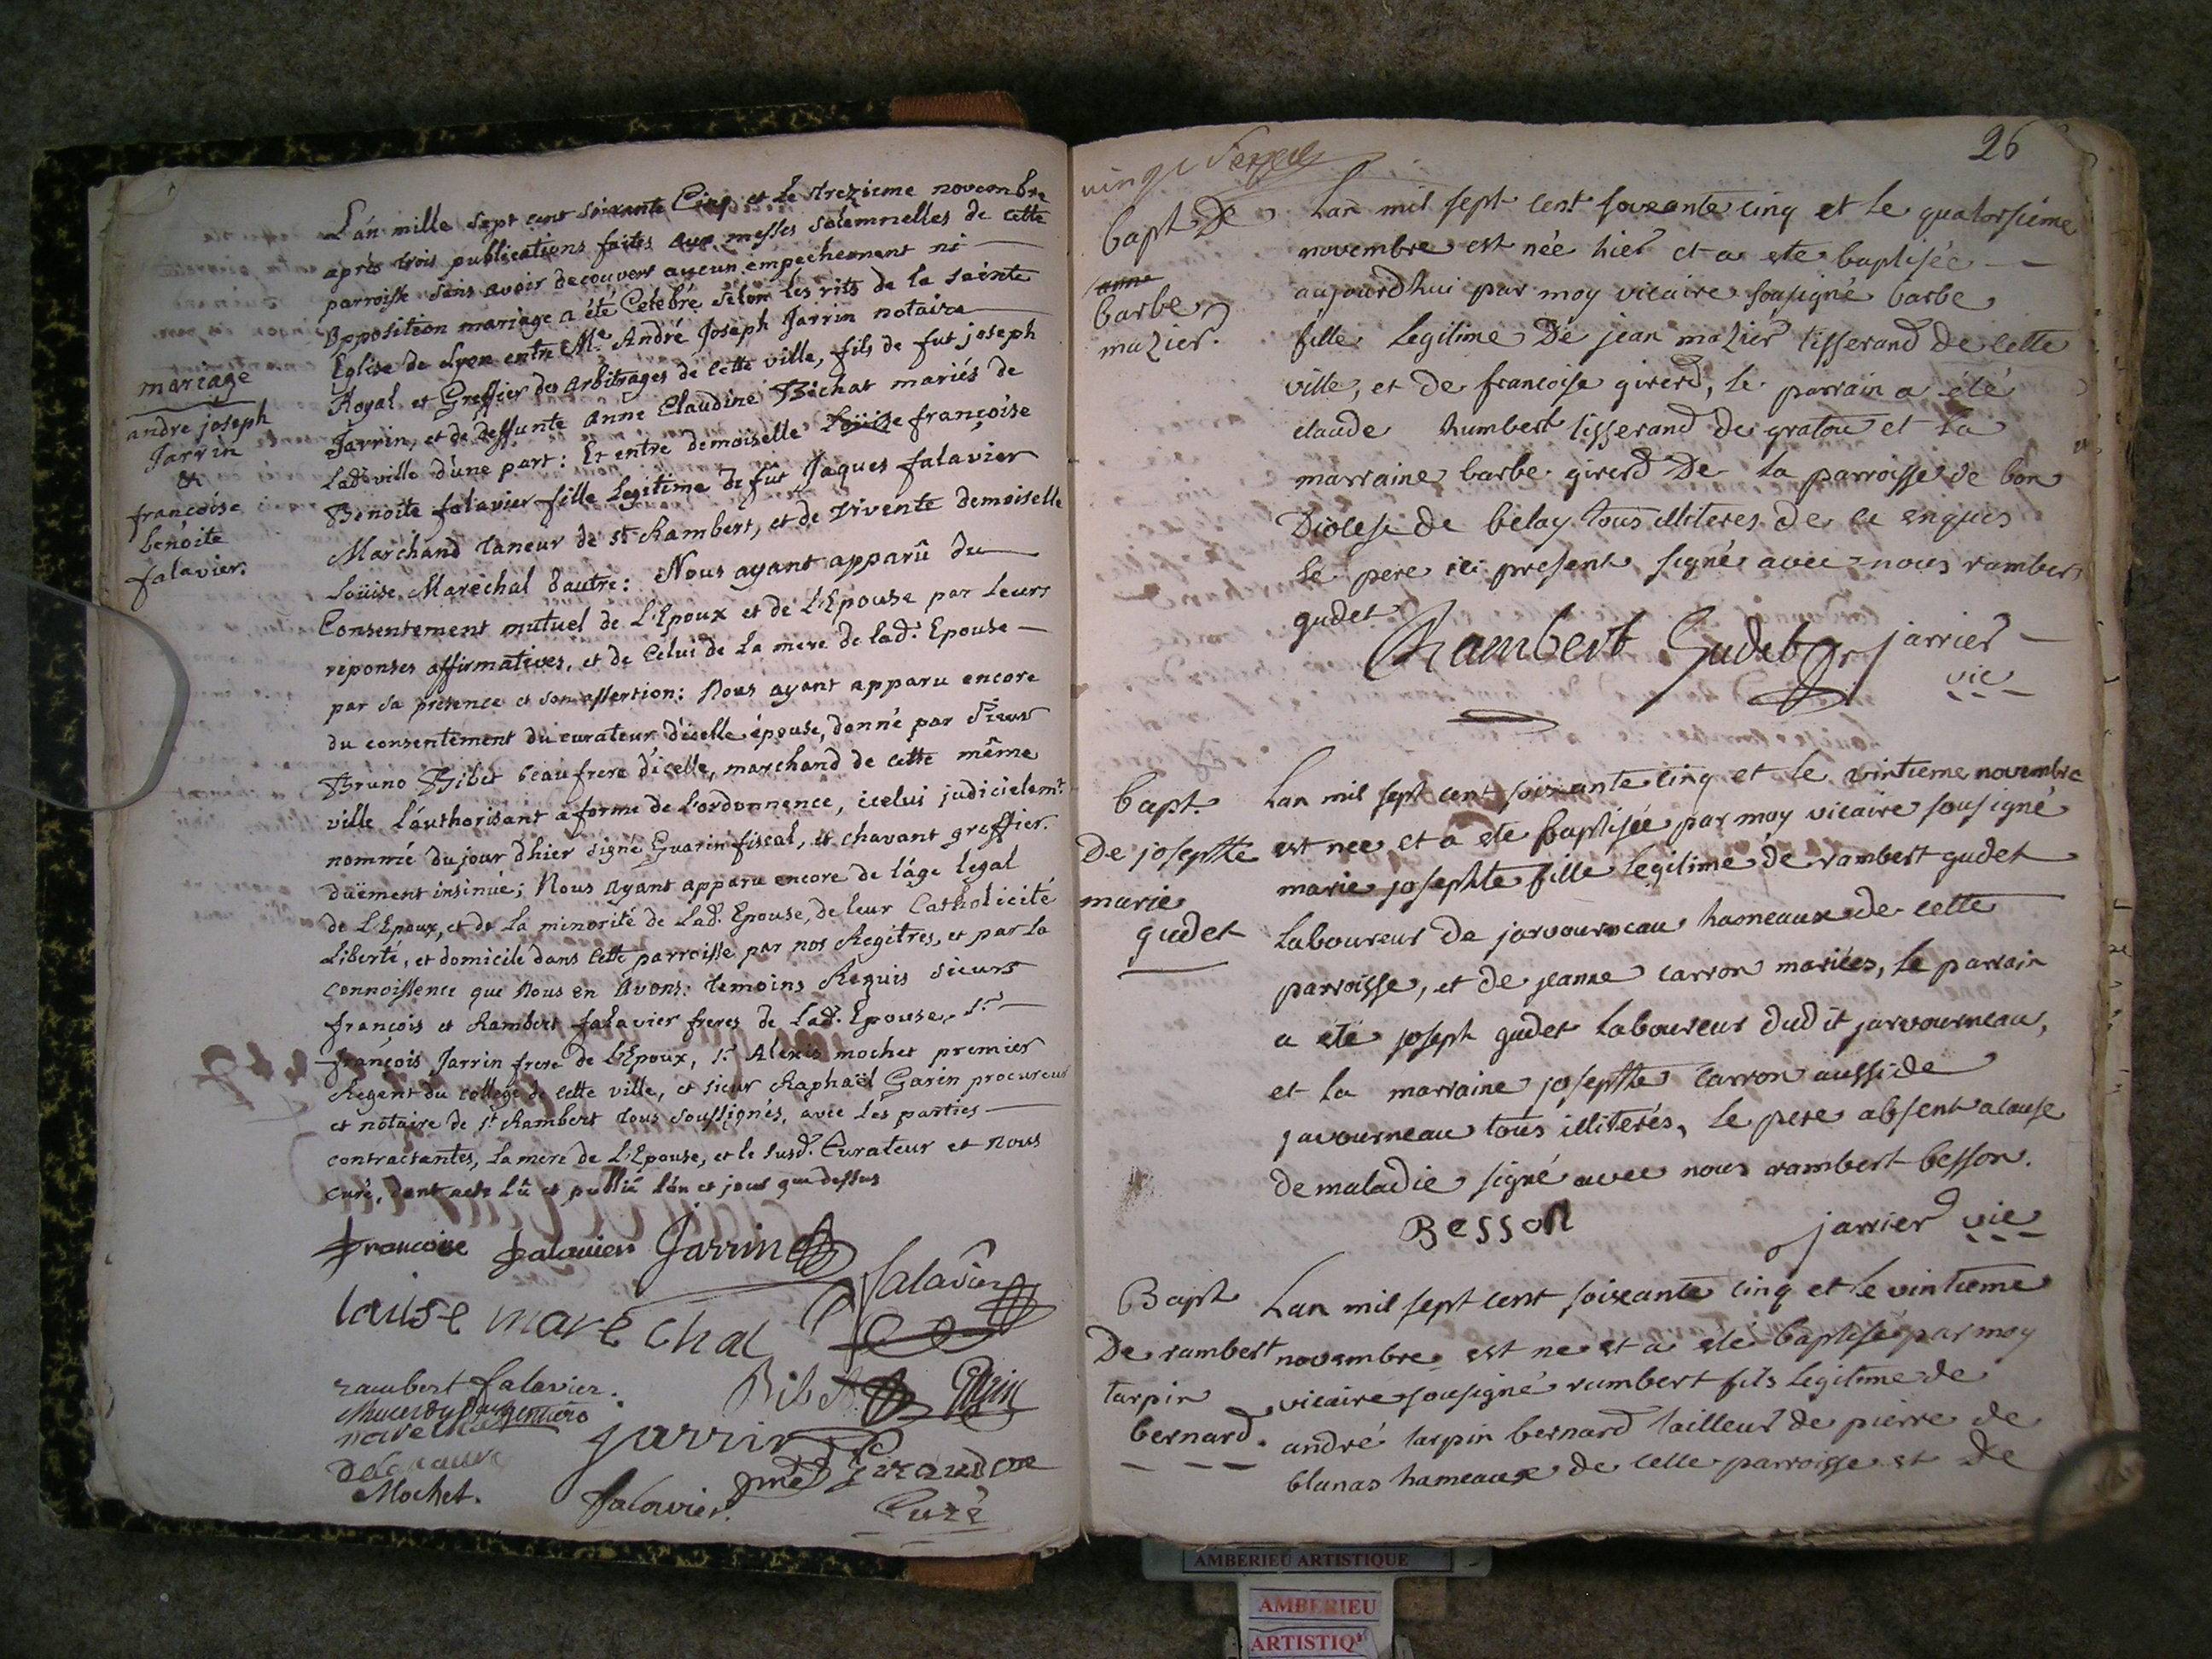 mariage
andre joseph
Jarrin
&
francoise
benoite
falavier.
L'án mille sept cent soixante Cinq et le treizieme novembre
après trois publications faites aux messes solemnelles de cette
parroisse sans avoir decouvert aucun empechement ni
opposition mariage a été Celebré selon les rits de la sainte
Eglise de Lyon entre Me. André Joseph Jarrin notaire
Royal et Greffier des Arbitrages de cette ville, fils de fut joseph
Jarrin, et de deffunte Anne Claudine Bichat mariés de
Lade. ville d'une part: Et entre demoiselle Loüise françoise
Benoite falavier fille Legitime de fut Jaques falavier
Marchand taneur de st. Rambert, et de vivente demoiselle
Loüise Maréchal dautre: Nous ayant apparû du
Consentement mutuel de L'Epoux et de L'Epouse par leurs
reponses affirmatives, et de Celui de la mere de lade. Epouse
par sa presence et son assertion: Nous ayant apparu encore
du consentement du curateur d'icelle épouse, donné par Sieur
Bruno Bibet beaufrere d'icelle, marchand de cette même
ville l'authorisant a forme de l'ordonnence, icelui judicielemt.
nommé du jour d'hier signé Guarin fiscal, et chavant greffier.
duëment insinüé; Nous ayant apparu encore de l'áge legal
de L'Epoux, et de la minorité de Lade. Epouse, de leur Catholicité
Liberté, et domicile dans cette parroisse par nos Regitres, et par la
connoissence que Nous en Avons: temoins Requis Sieurs
françois et Rambert falavier freres de Lade. Epouse, sr.
françois Jarrin frere de l'Epoux, sr. Alexis mochet premier
Regent du college de cette ville, et sieur Raphaël Garin procureur
et notaire de st. Rambert tous soussignés, avec les parties
contractantes, la mere de L'Epouse, et le susd. Curateur et Nous
curé, dont acte lû et publié l'án et jour que dessus
francoise falavier Jarrin
falavier
louise marechal
rambert falavier.
Bibet Garin
jarrin
Mochet.
falavier.
Giraudon
Curé
26
bapt De
anne
barbe
mazier.
Lan mil sept cent soixante cinq et le quatorsiéme
novembre est née hier et a ete baptisée
aujourdhui par moy vicaire sousigné barbe
fille Legitime De jean mazier tisserand de cette
ville, et de francoise girerd, le parrain a été
claude humbert tisserand de gratou et la
marraine barbe girerd De la parroisse de bon
Diocese de belay tous illiteres de ce enquis
le pere ici present signé avec nous rambert
gudet
Rambert Gudet jarrier
vic
bapt.
De josephte
marie
gudet
Lan mil sept cent soixante cinq et le vintieme novembre
est nee et a ete baptisée par moy vicaire sousigné
marie josephte fille legitime de rambert gudet
laboureur de javourneau hameaux de cette
parroisse, et de jeanne carron mariées, le parrain
a été joseph gudet laboureur dudit javourneau,
et la marraine josephte carron aussi de
javourneau tous illiterés, le pere absent a cause
de maladie signé avec nous rambert besson.
Besson jarrier vic
Bapt
De rambert
tarpin
bernard.
Lan mil sept cent soixante cinq et le vintieme
novembre est ne et a été baptisé par moy
vicaire sousigné rambert fils legitime de
andré tarpin bernard tailleur de pierre de
blanas hameaux de cette parroisse et de
AMBERIEU ARTISTIQUE
AMBERIEU
ARTISTIQ